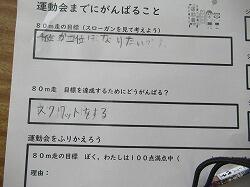 運動会までにがんばること
80m走の目標（スローガンを見て考えよう）
位か二位になりたいです
80m走 目標を達成するためにどうがんばる？
スクワットをする
運動会をふりかえろう
80m走の目標 ぼく、わたしは100点満点中（
理由：